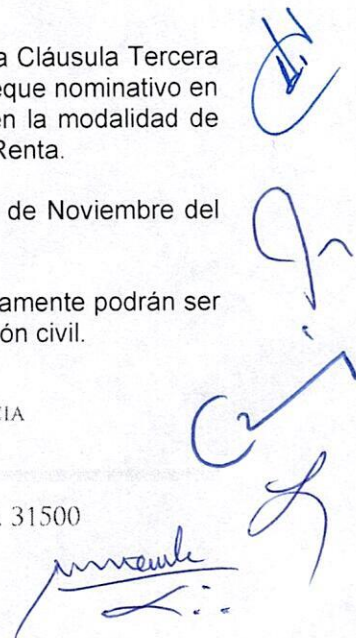 a Cláusula Tercera
eque nominativo en
en la modalidad de
Renta.
de Noviembre del
amente podrán ser
ón civil.
CIA
. 31500